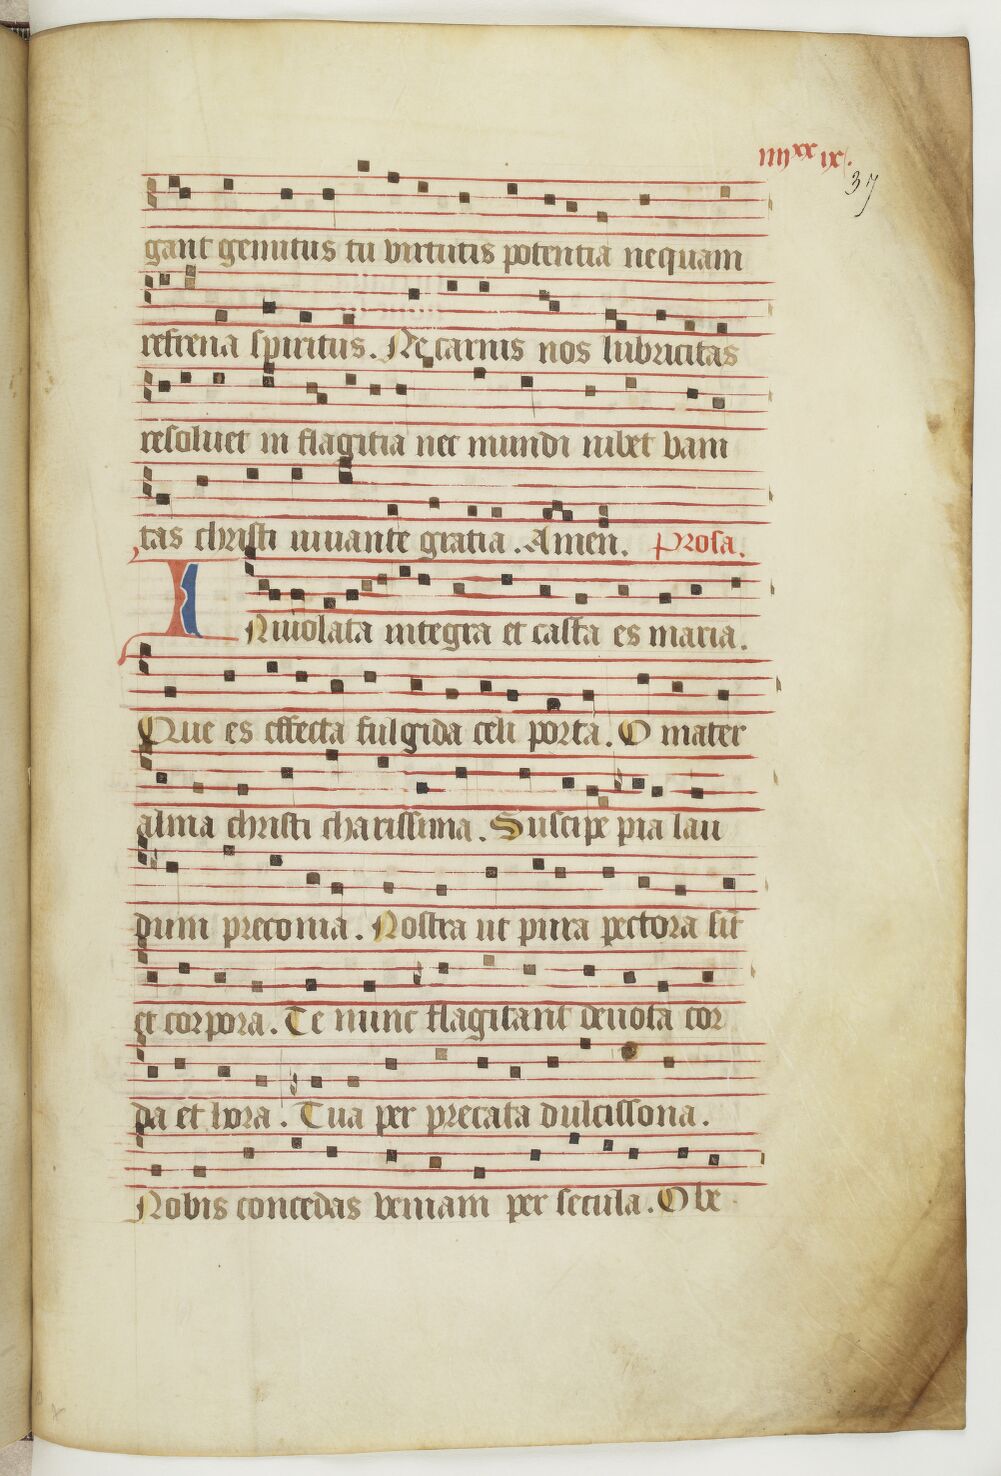 iiiixx ix.
37
gant gemitus tu virtutis potentia nequam
refrena spiritus. Ne carnis nos lubricitas
resoluet in flagitia nec mundi iubet vani
tas christi iuuante gratia. Amen. Prosa.
INuiolata integra et casta es maria.
Que es effecta fulgida celi porta. O mater
alma christi charissima. Suscipe pia lau
dum preconia. Nostra ut pura pectora sint
et corpora. Te nunc flagitant deuota cor
da et hora. Tua per precata dulcissona.
Nobis concedas veniam per secula. O be